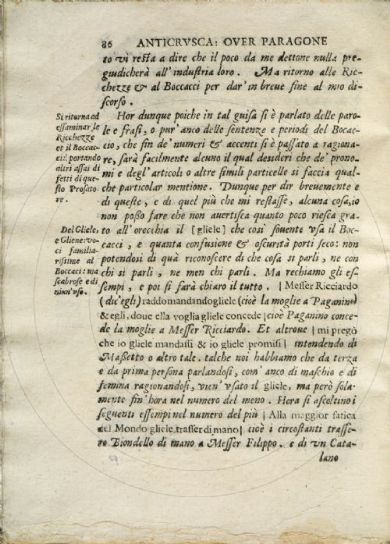 86 ANTICRVSCA: OVER PARAGONE
to vi resta a dire che il poco da me dettone nulla pre-
giudicherà all'industria loro. Ma ritorno alle Ric-
chezze & al Boccacci per dar'in breve fine al mio di-
scorso.
Si ritorna ad
essaminar le
Ricchezze
et il Boccac-
cii: portando
altri assai di
fetti di que-
sto Prosato-
re.
Hor dunque poiche in tal guisa si è parlato delle paro-
le e frasi, o pur'anco delle sentenze e periodi del Bocac-
cio, che fin de' numeri & accenti si è passato a ragiona-
re, sarà facilmente alcuno il qual desideri che de' prono-
mi e degl'articoli o altre simili particelle si faccia qual-
che particolar mentione. Dunque per dir brevemente e
di queste, e di quel più che mi restasse, alcuna cosa, io
non posso fare che non avertisca quanto poco riesca gra-
Del Gliele,
e Gliene: vo-
ci familia-
rissime al
Boccaci: ma
scabrose e di
niun'uso.
to all'orecchia il [gliele] che così sovente usa il Boc-
cacci, e quanta confusione & oscurità porti seco: non
potendosi di quà riconoscere di che cosa si parli, ne con
chi si parli, ne men chi parli. Ma rechiamo gli es-
sempi, e poi si farà chiaro il tutto. [Messer Ricciardo
(dic'egli) raddomandandogliele (cioè la moglie a Paganino)
& egli, doue ella voglia gliele concede] cioè Paganino conce-
de la moglie a Messer Ricciardo. Et altroue [mi pregò
che io gliele mandassi & io gliele promisi] intendendo di
Massetto o altro tale. talche noi habbiamo che da terza
e da prima persona parlandosi, com' anco di maschio e di
femina ragionandosi, vien' vsato il gliele, ma però sola-
mente fin'hora nel numero del meno. Hora si ascoltino i
seguenti essempi nel numero del più [Alla maggior fatica
del Mondo gliele trasser di mano] cioè i circostanti trasse-
ro Biondello di mano a Messer Filippo. e di vn Cata-
lano